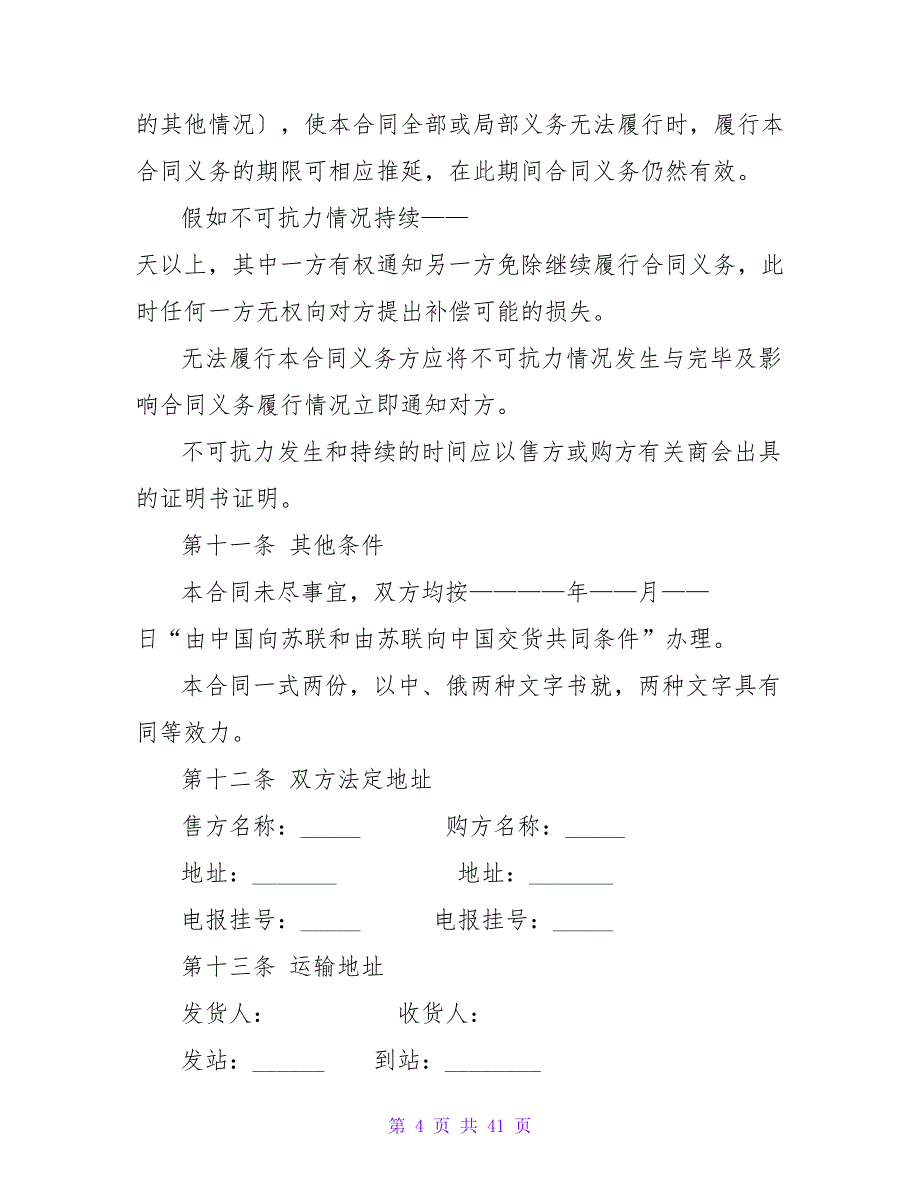 的其他情况〕，使本合同全部或局部义务无法履行时，履行本
合同义务的期限可相应推延，在此期间合同义务仍然有效。
假如不可抗力情况持续——
天以上，其中一方有权通知另一方免除继续履行合同义务，此
时任何一方无权向对方提出补偿可能的损失。
无法履行本合同义务方应将不可抗力情况发生与完毕及影
响合同义务履行情况立即通知对方。
不可抗力发生和持续的时间应以售方或购方有关商会出具
的证明书证明。
第十一条 其他条件
本合同未尽事宜，双方均按————年——月——
日“由中国向苏联和由苏联向中国交货共同条件”办理。
本合同一式两份，以中、俄两种文字书就，两种文字具有
同等效力。
第十二条 双方法定地址
售方名称：_____ 购方名称：_____
地址：_______ 地址：_______
电报挂号：_____ 电报挂号：_____
第十三条 运输地址
发货人： 收货人：
发站：______ 到站：________
第 4 页 共 41 页